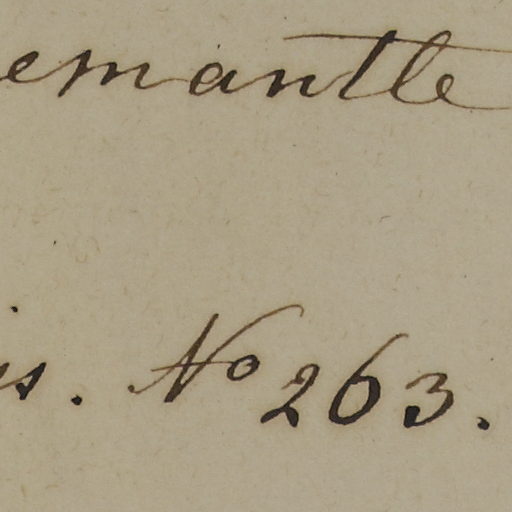 emantle
is. No 263.